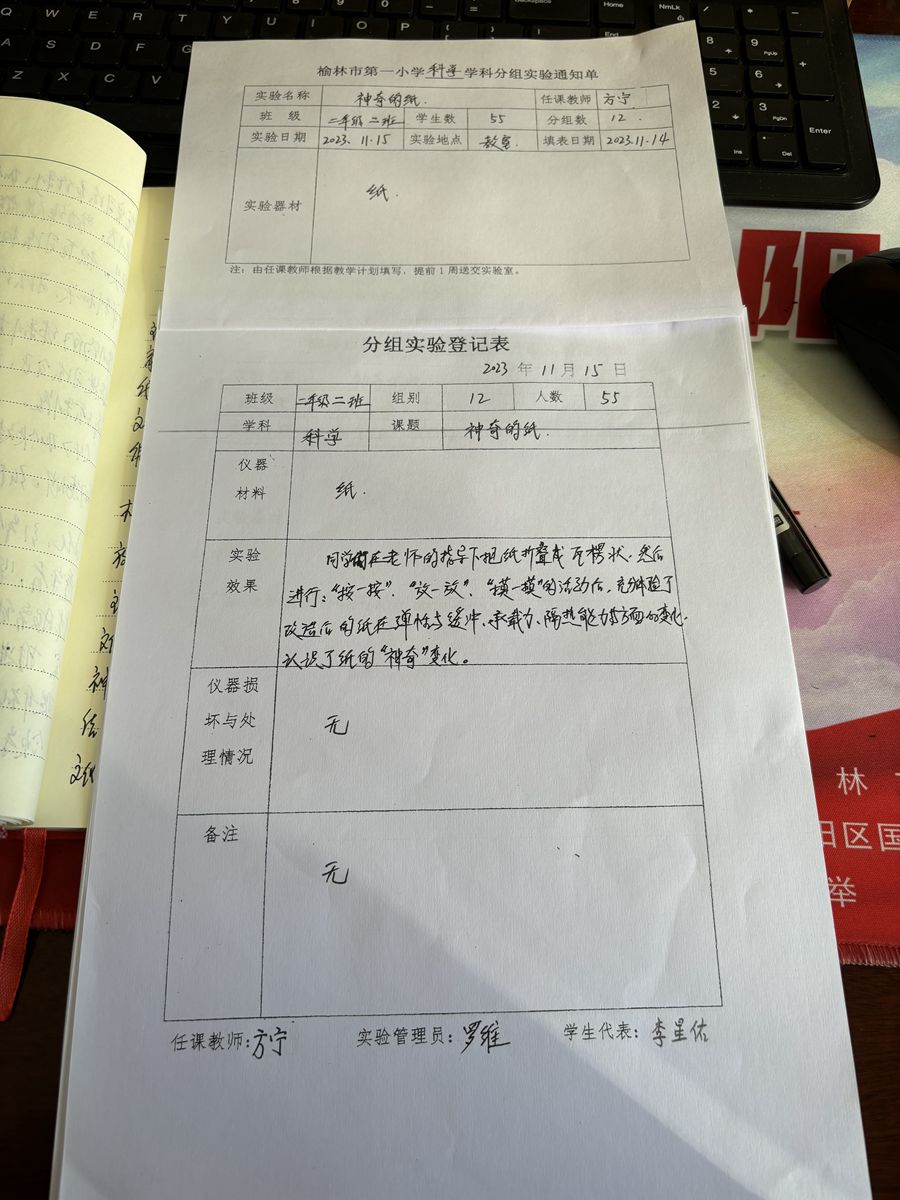 榆林市第一小学科学学科分组实验通知单
实验名称 神奇的纸. 任课教师 方宁
班 级 二年级二班 学生数 55 分组数 12.
实验日期 2023.11.15 实验地点 教室. 填表日期 2023.11.14
实验器材 纸.
注：由任课教师根据教学计划填写，提前1周送交实验室。
分组实验登记表
2023 年 11 月 15 日
班级 二年级二班 组别 12 人数 55
学科 科学 课题 神奇的纸.
仪器
材料 纸.
实验 同学们在老师的指导下把纸折叠成瓦楞状，然后
效果 进行：“按一按”、“放一放”、“摸一摸”的活动后，充分体验了
改造后的纸在弹性与缓冲、承载力、隔热能力等方面的变化.
认识了纸的“神奇”变化。
仪器损
坏与处 无
理情况
备注
无
任课教师：方宁 实验管理员：罗维 学生代表：李星佑
阳
林
田区国
举